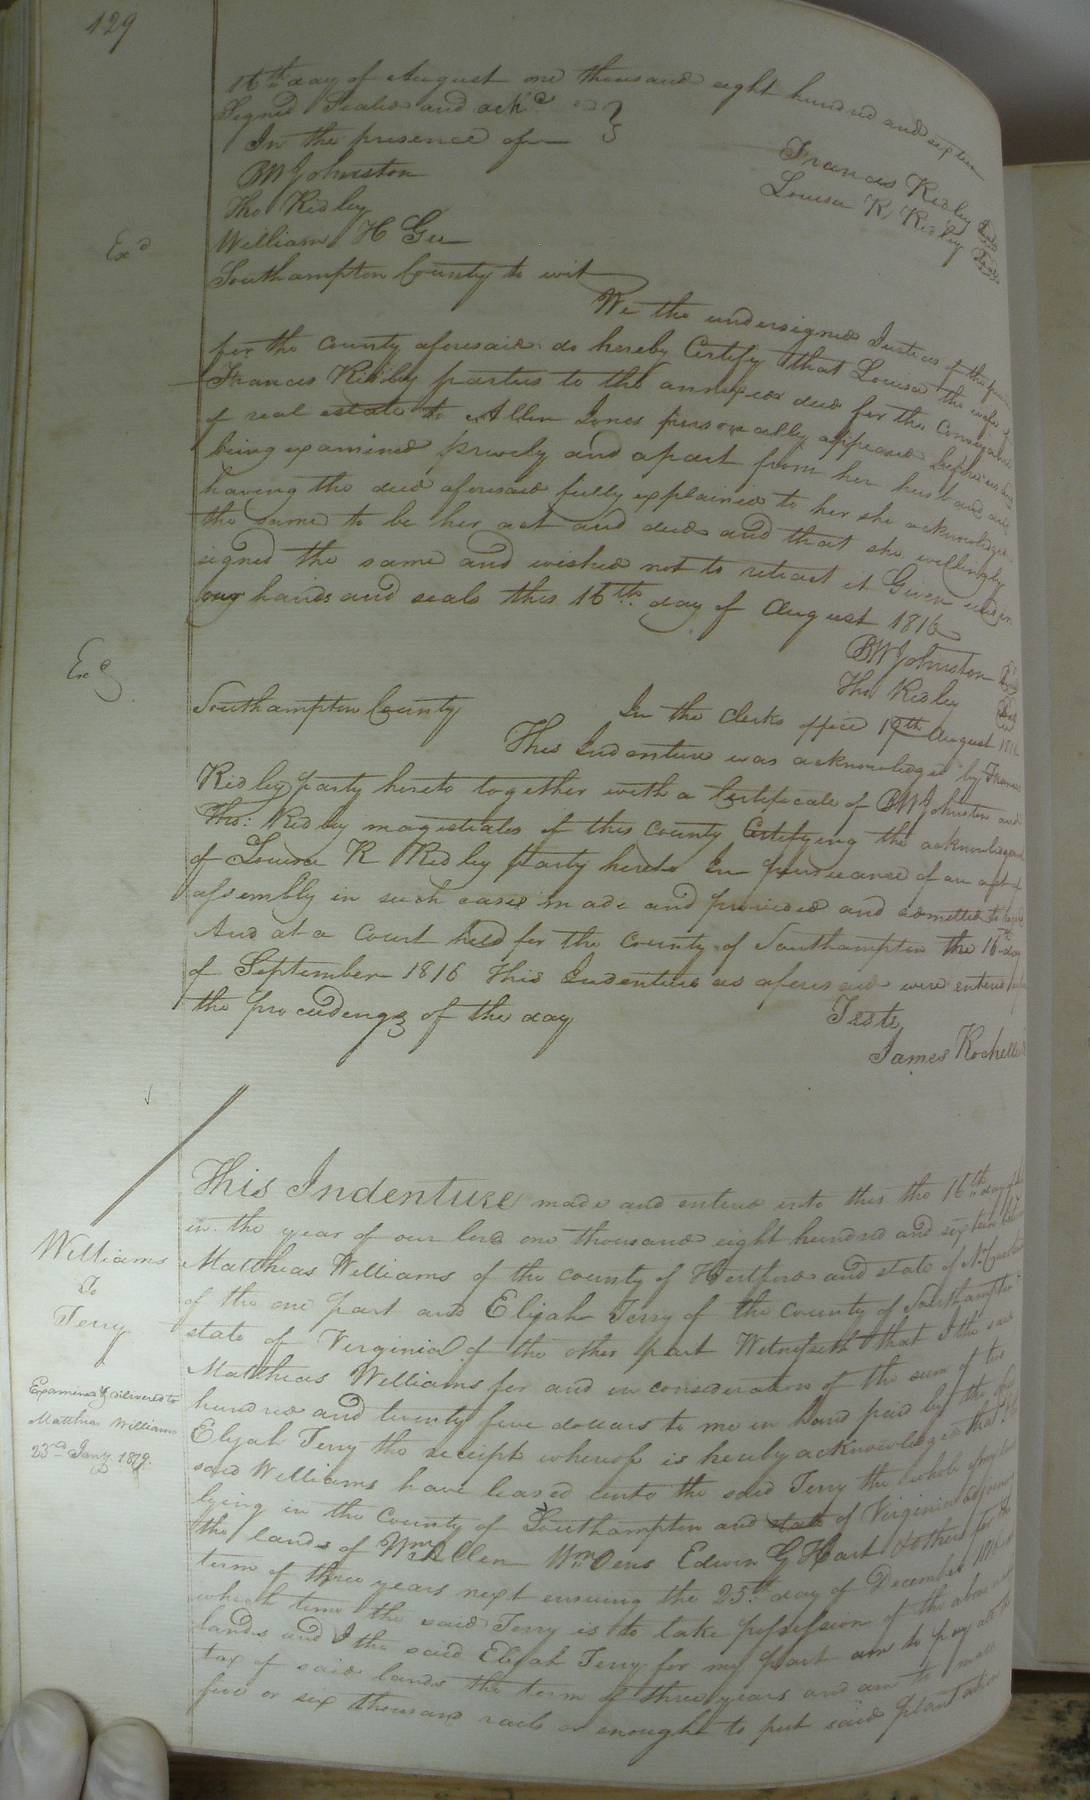 129
16th day of August one thousand eight hundred and sixteen
Signed Sealed and ackd
In the presence of
BW Johnston
Francis Ridley Seal
Tho Ridley
Louisa R Ridley Seal
William H Gee
Exd
Southampton County to wit
We the undersigned Justices of the
for the County aforesaid do hereby Certify that Louisa the wife of
Francis Ridley parties to the annexed deed for the Conveyance
of real estate to Allen Jones personally appeared before us and
being examined privily and apart from her husband and
having the deed aforesaid fully explained to her she acknowledged
the same to be her act and deed and that she willingly
signed the same and wished not to retract it Given under
our hands and seals this 16th day of August 1816
BW Johnston Seal
Tho Ridley Seal
Exd
Southampton County
In the Clerks office 19th August 1816
This Indenture was acknowledged by Francis
Ridley party hereto together with a Certificate of BW Johnston and
Tho: Ridley magistrates of this County Certifying the acknowledgment
of Louisa R Ridley party hereto In pursuance of an act of
assembly in such cases made and provided and admitted to record
And at a Court held for the County of Southampton the 16th day
of September 1816 This Indenture as aforesaid were entered
the proceedings of the day
Teste
James Rochelle
This Indenture made and entered into this the 16th day of
in the year of our lord one thousand eight hundred and sixteen between
Williams
To
Terry
Matthias Williams of the county of Hertford and state of N. Carolina
of the one part and Elijah Terry of the County of Southampton
state of Virginia of the other part Witnesseth that I the said
Matthias Williams for and in consideration of the sum of two
Examined & delivered to
Matthias Williams
23rd Jany 1819.
hundred and twenty five dollars to me in hand paid by the
Elijah Terry the receipt whereof is hereby acknowledged that I the
said Williams have leased unto the said Terry the whole of my land
lying in the County of Southampton and state of Virginia adjoining
the lands of Wm Allen Wm Dens Edwin G Hart & others for the
term of three years next ensuing the 25th day of December 1816 at
which time the said Terry is to take possession of the above
lands and I the said Elijah Terry for my part am to pay all the
tax of said lands the term of three years and am to maul
five or six thousand rails or enought to put said plantation